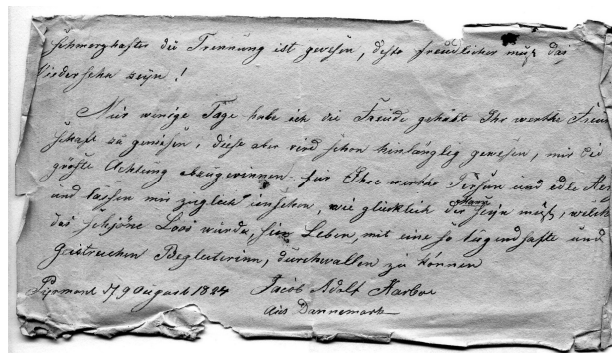 schmerzhafter die Trennung ist gewesen, desto freudlicher muß das
Wiedersehn seyn!
Nur wenige Tage habe ich die Freude gehabt Ihr werthe Freun
schaft zu geniesen, diese aber sind schon henlänglig gewesen, mir die
größte Achtung abzugewinnen für Ihre werthe Person und edle
und lassen mir zugleich einsehen, wie glücklich der Mann seyn muß, welch
das schöne Loos würde, sein Leben, mit eine so tugendhafte und
Geistreichen Begleiterinn, durchwallen zu können
Pyrmont d 9 August 1824 Jacob Adolf Harboe
aus Dannemark